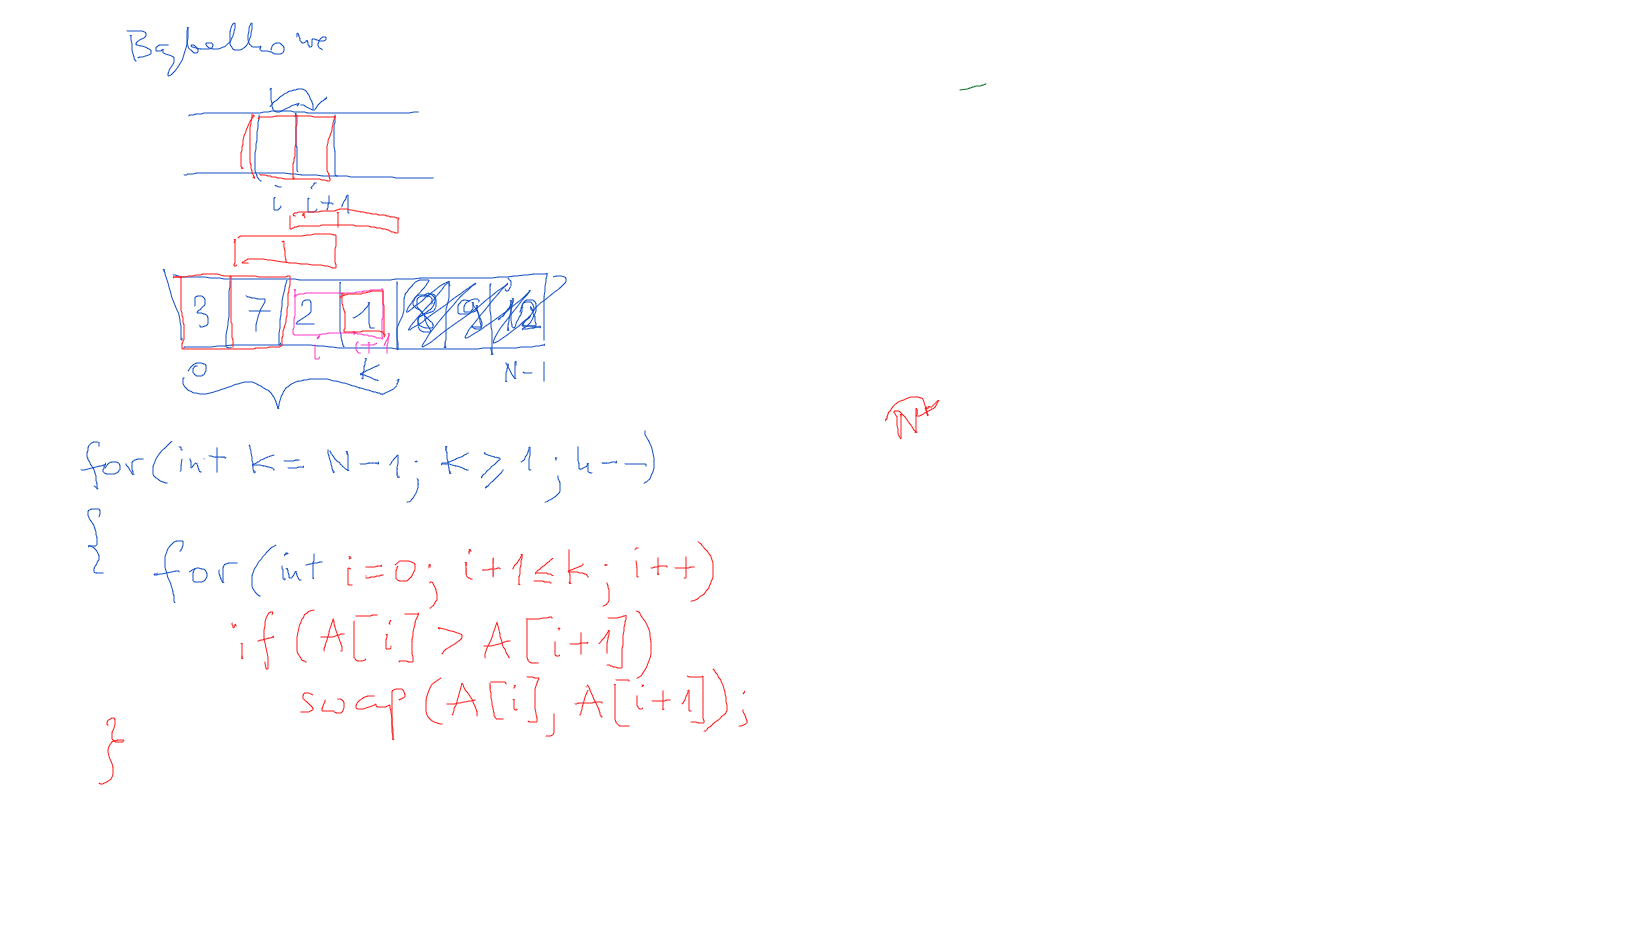 Bąbelkowe
i i+1
3 7 2 1 8 9 12
i i+1
0 k N-1
N
for(int k = N-1; k ≥ 1; k--)
{
for(int i=0; i+1≤k; i++)
if (A[i] > A[i+1])
swap(A[i], A[i+1]);
}